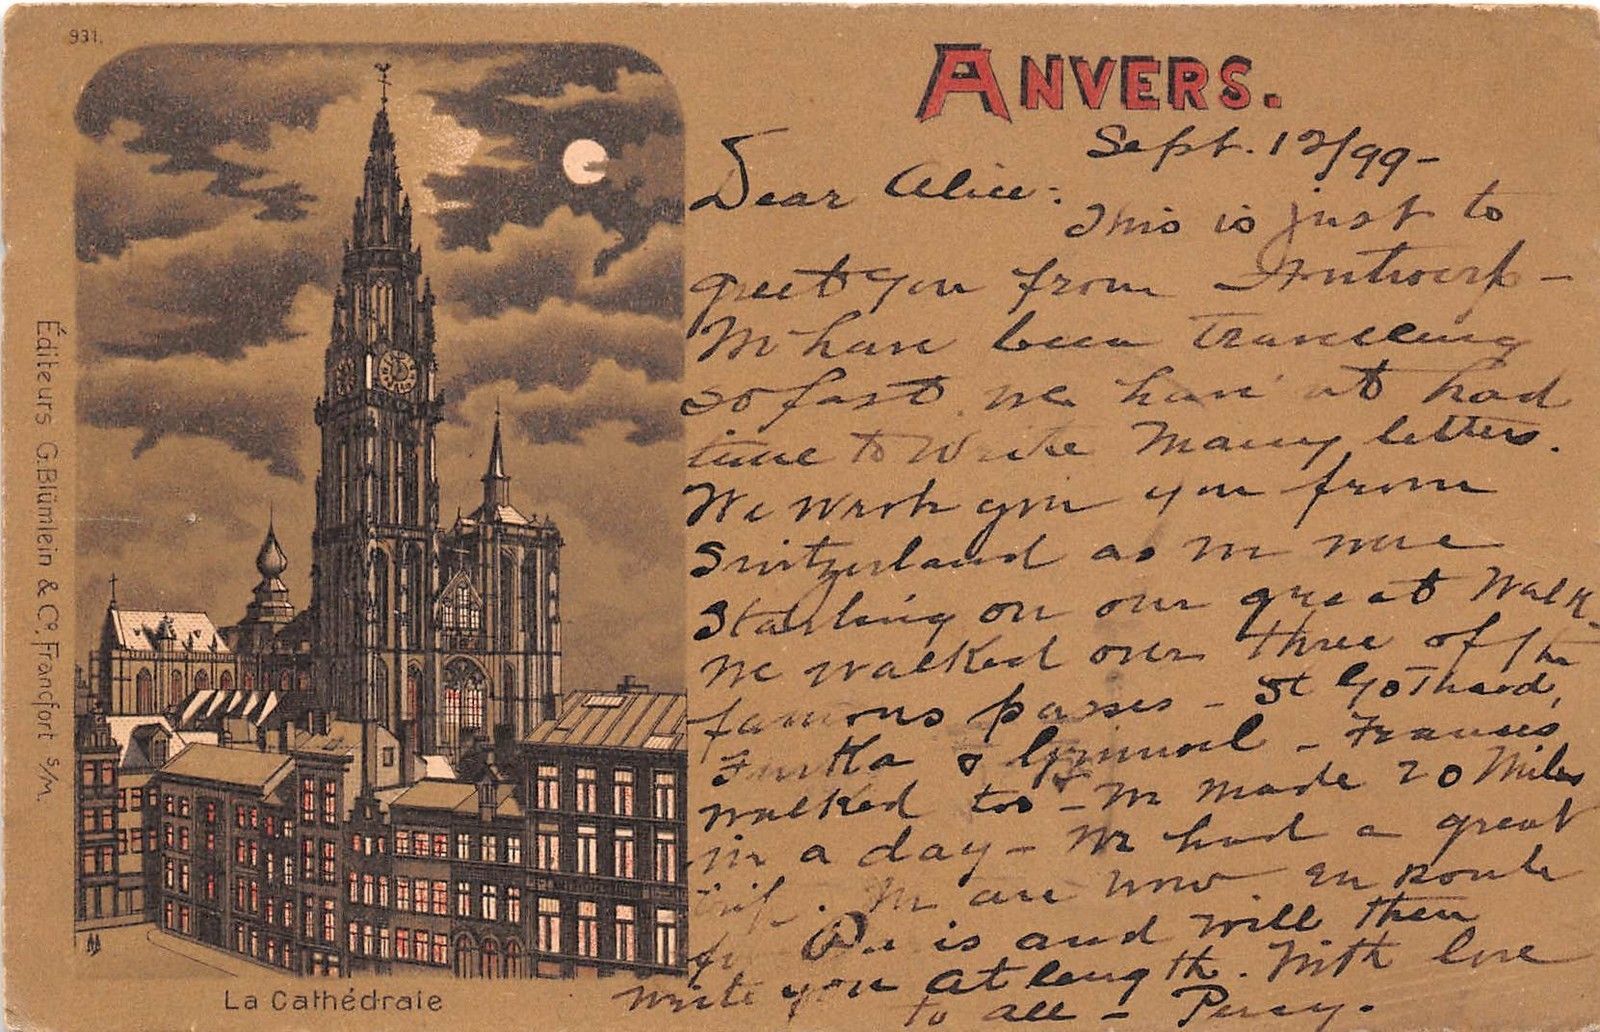 931.
ANVERS.
Sept. 12/99-
Dear Alice:
This is just to
greet you from Antwerp -
We have been travelling
so fast we have had
time to write many letters.
We wrote you from
Switzerland as we were
starting on our great walk.
We walked over three of the
famous passes - St Gothard,
Furka & Grimsel - Frances
walked too - We made 20 miles
in a day - We had a great
trip. We are now en route
for Paris and will then
write you at length. With love
to all - Percy.
Éditeurs G. Blümlein & Co, Francfort s/M.
La Cathédrale